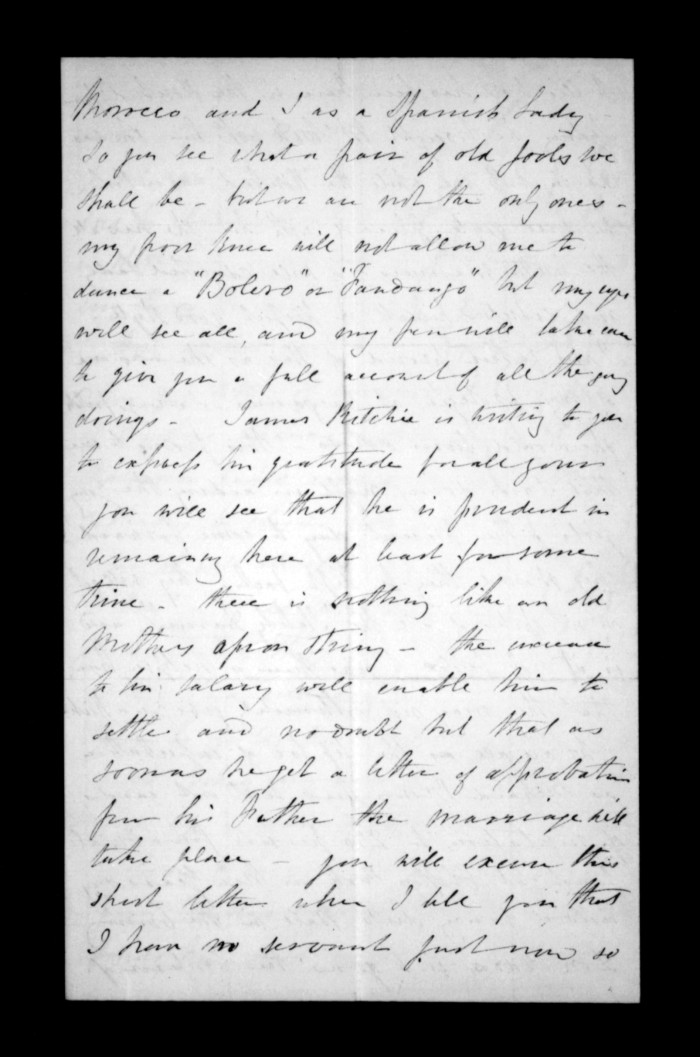 Morocco and I as a Spanish Lady
So you see what a pair of old fools we
shall be - but we are not the only ones -
my poor knee will not allow me to
dance a "Bolero" or "Fandango" but my eyes
will see all, and my pen will take care
to give you a full account of all the gay
doings - James Ritchie is writing to you
to express his gratitude for all your
you will see that he is prudent in
remaining here at least for some
time - there is nothing like an old
Mothers apron string - the increase
to his salary will enable him to
settle and no doubt but that as
soon as he get a letter of approbation
from his Father the marriage will
take place - you will excuse this
short letter when I tell you that
I have no servant just now so